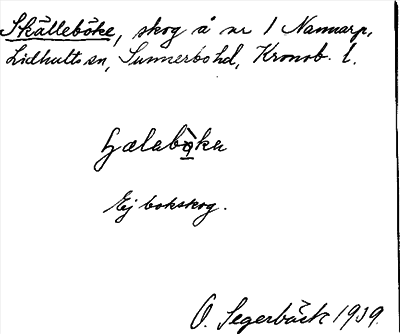 Skälleböke, skog å nr 1 Nannarp,
Lidhults sn, Sunnerbo hd, Kronob. l.
Ej bokskog.
O. Segerbäck 1939.